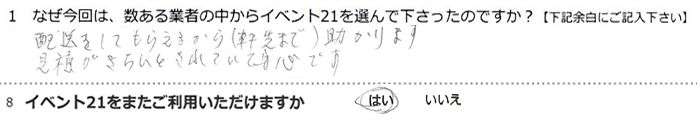 1 なぜ今回は、数ある業者の中からイベント21を選んで下さったのですか？【下記余白にご記入下さい】
配送をしてもらえるから(軒先まで)助かります
見積がきちんとされていて安心です
8 イベント21をまたご利用いただけますか はい いいえ